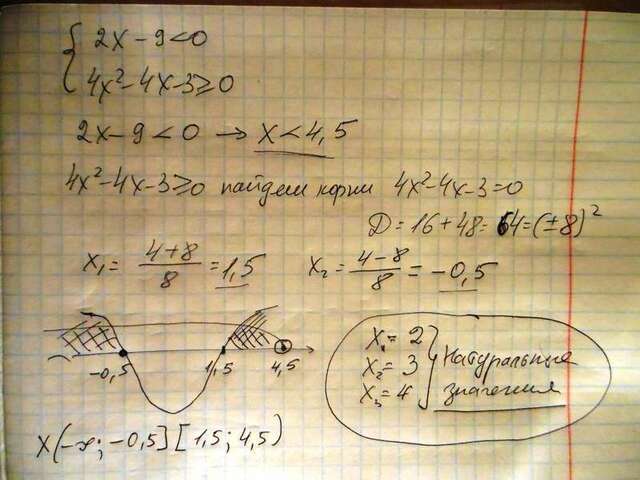 { 2x - 9 < 0
4x² - 4x - 3 ≥ 0
2x - 9 < 0 → x < 4,5
4x² - 4x - 3 ≥ 0 найдем корни 4x² - 4x - 3 = 0
D = 16 + 48 = 64 = (±8)²
x₁ = (4+8)/8 = 1,5 x₂ = (4-8)/8 = -0,5
-0,5 1,5 4,5
x₁ = 2
x₂ = 3 } Натуральные
x₃ = 4 значения
x(-∞; -0,5] [1,5; 4,5)